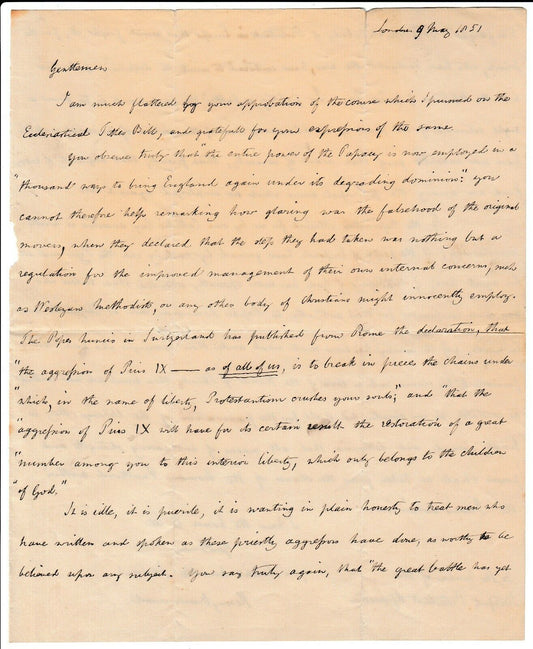 London 9 May 1851
Gentlemen
I am much flattered by your approbation of the course which I pursued on the
Ecclesiastical Titles Bill, and grateful for your expression of the same.
You observe truly that "the entire power of the Papacy is now employed in a
"thousand ways to bring England again under its degrading dominion": you
cannot therefore help remarking how glaring was the falsehood of the original
movers, when they declared that the step they had taken was nothing but a
regulation for the improved management of their own internal concerns, such
as Wesleyan Methodists, or any other body of Christians might innocently employ.
The Popes Nuncio in Switzerland has published from Rome the declaration, that
"the aggression of Pius IX — as of all of us, is to break in pieces the chains under
"which, in the name of liberty, Protestantism crushes your souls;" and "that the
"aggression of Pius IX will have for its certain result the restoration of a great
"number among you to this interior liberty, which only belongs to the children
"of God."
It is idle, it is puerile, it is wanting in plain honesty to treat men who
have written and spoken as these priestly aggressors have done, as worthy to be
believed upon any subject. You say truly again, that "the great battle has yet